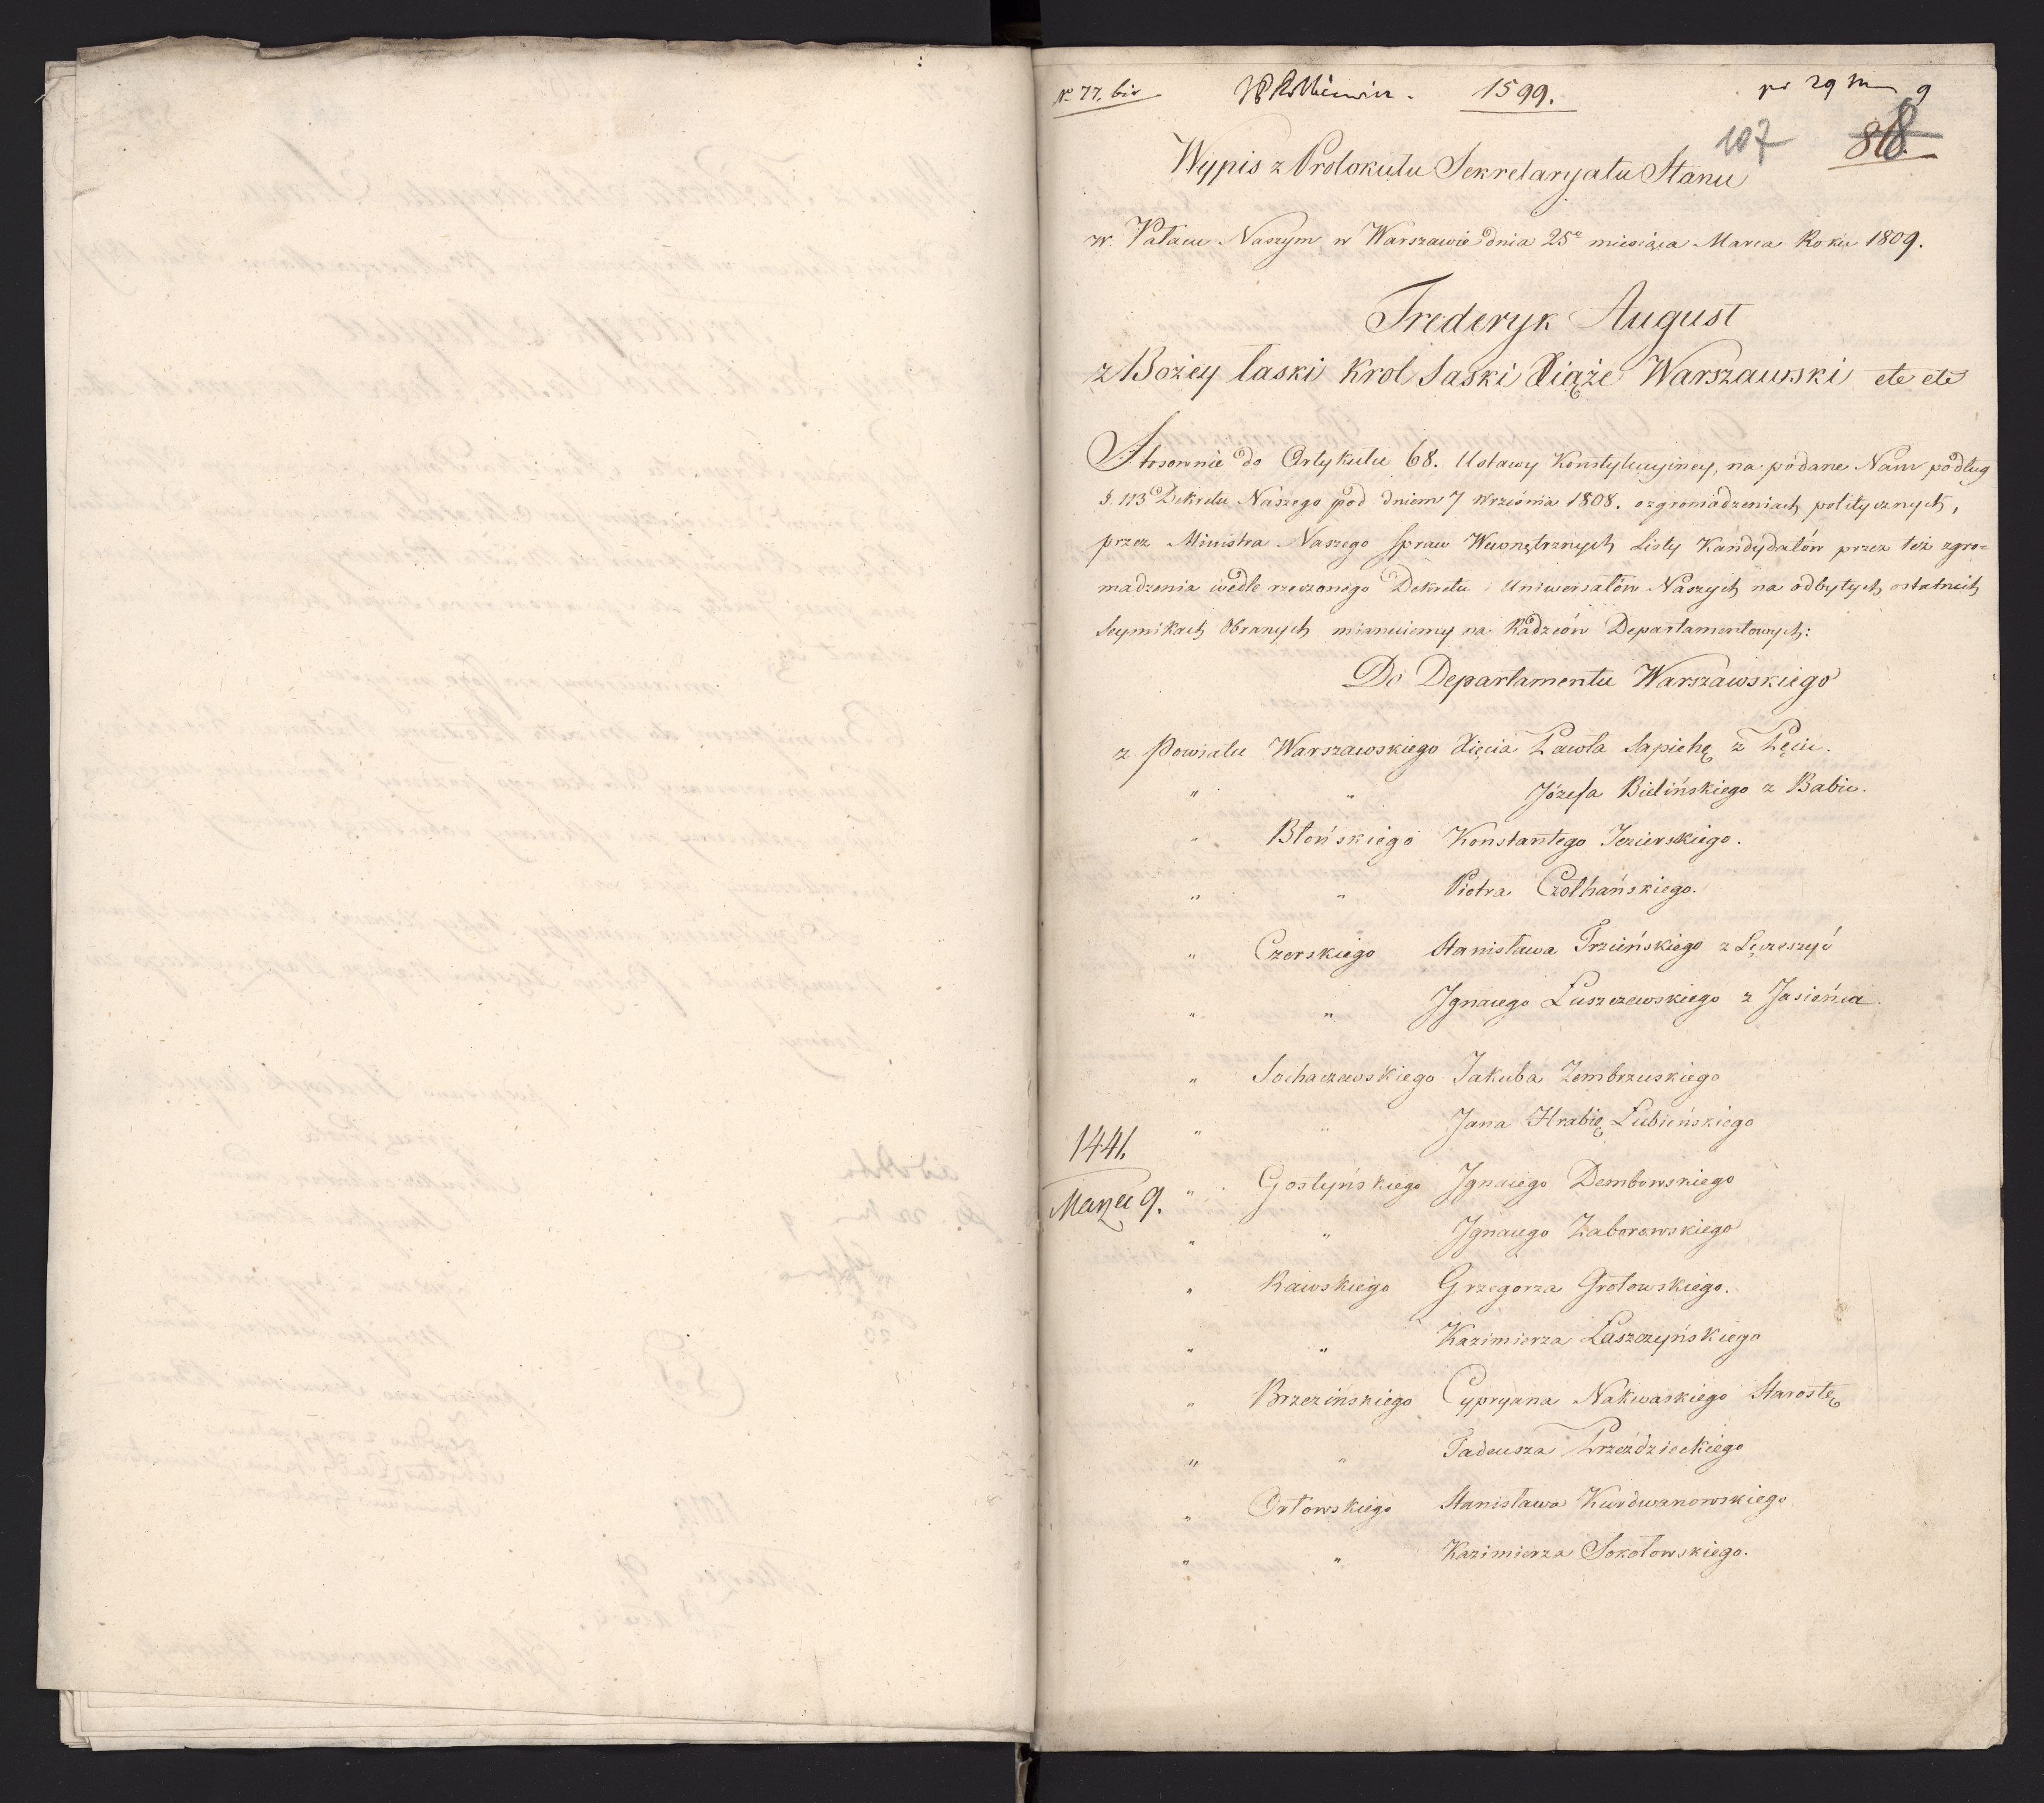 N. 77. bis 1599. pr 29 9
107 818
Wypis z Protokułu Sekretaryatu Stanu
w Pałacu Naszym w Warszawie dnia 25º miesiąca Marca Roku 1809.
Frederyk August
z Bożey łaski Krol Saski Xiąże Warszawski etc etc
Stosownie do Artykułu 68. Ustawy Konstytucyiney, na podane Nam podług
§. 113 Dekretu Naszego pod dniem 7 Września 1808. o zgromadzeniach politycznych,
przez Ministra Naszego Spraw Wewnętrznych Listy Kandydatów przez też zgro=
madzenia wedle rzeczonego Dekretu i Uniwersałów Naszych na odbytych ostatnich
Seymikach Obranych mianuiemy na Radzców Departamentowych:
Do Departamentu Warszawskiego
z Powiatu Warszawskiego Xięcia Pawła Sapiehę z Pęcic.
" " Józefa Bielińskiego z Babic.
" Błońskiego Konstantego Jezierskiego.
" " Piotra Czołhańskiego.
" Czerskiego Stanisława Trzcińskiego z Łęczeszyc
" " Ignacego Łuszczewskiego z Jasieńca.
" Sochaczewskiego Jakuba Zembrzuskiego
" " Jana Hrabię Łubieńskiego
1441.
" Gostyńskiego Ignacego Dembowskiego
Marza 9.
" " Ignacego Zaborowskiego
" Rawskiego Grzegorza Grotowskiego.
" " Kazimierza Łaszczyńskiego
" Brzezińskiego Cypryana Nakwaskiego Starostę
" " Tadeusza Przeździeckiego
" Orłowskiego Stanisława Kurdwanowskiego
" " Kazimierza Sokołowskiego.